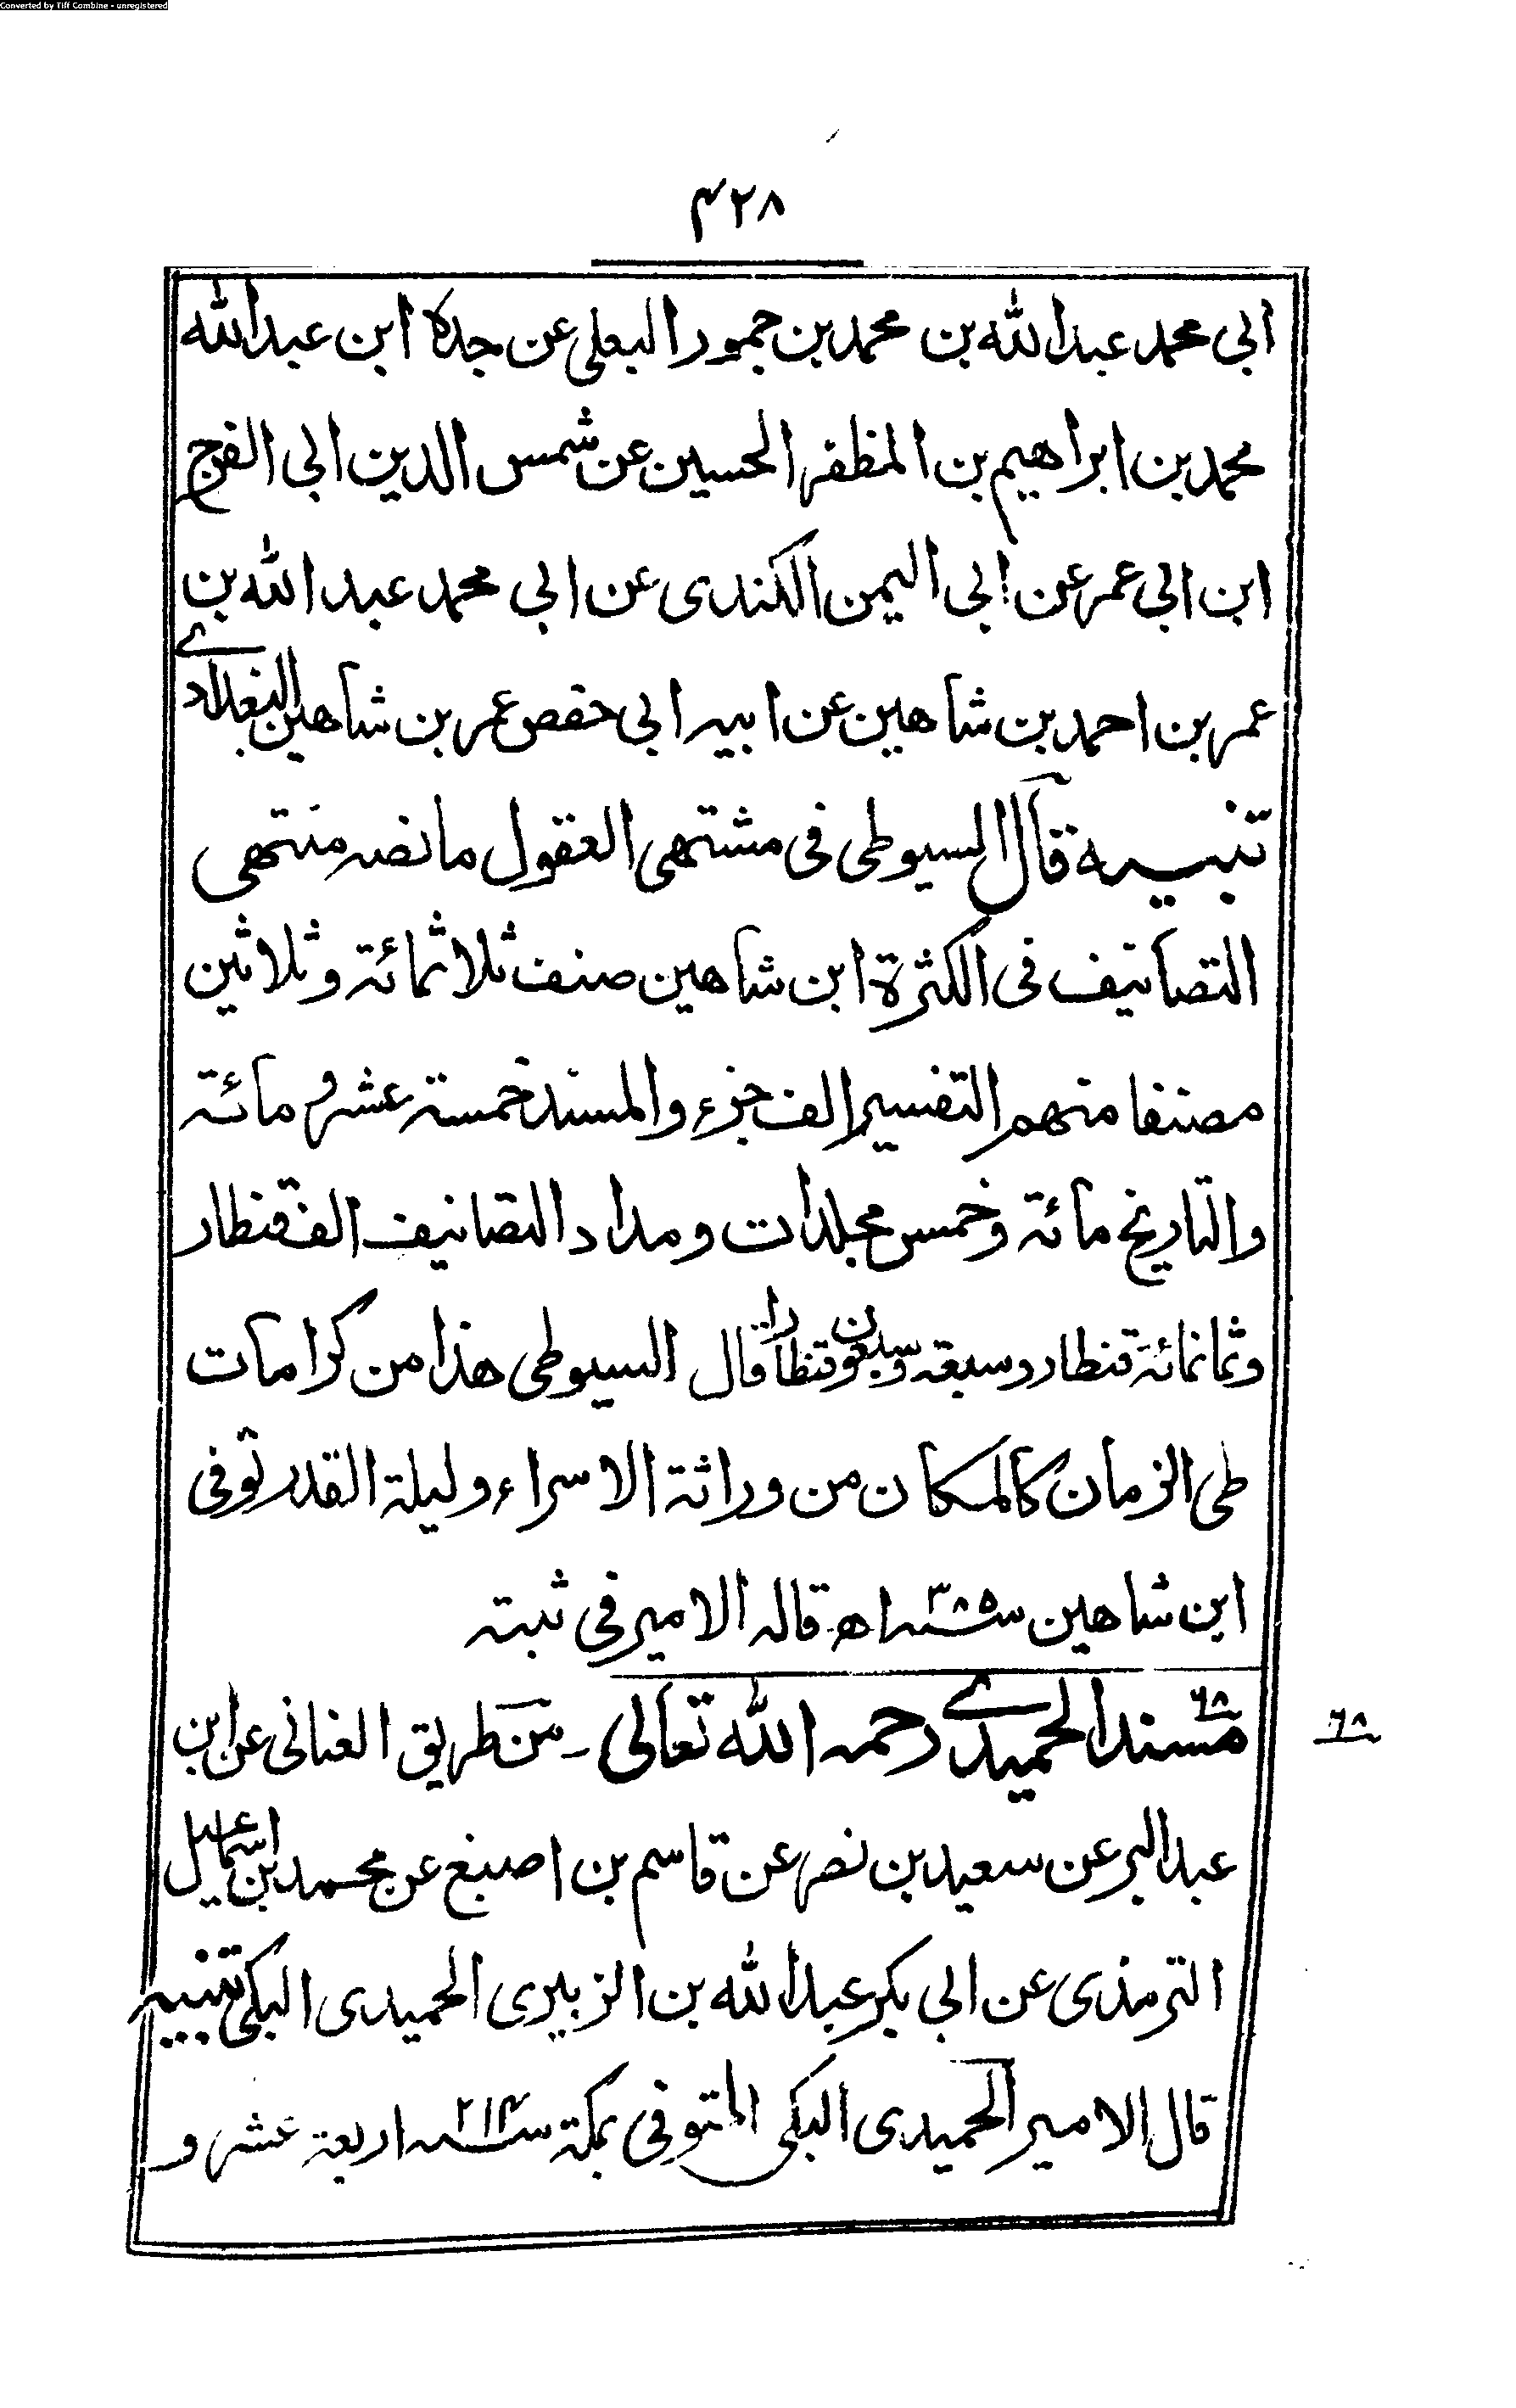 Converted by Tiff Combine - unregistered
۴۲۸
ابی محمد عبدالله بن محمد بن حمود البعلی عن جده ابن عبدالله
محمد بن ابراهیم بن المظفر الحسین عن شمس الدین ابی الفرج
ابن ابی عمر عن ابی الیمن الکندی عن ابی محمد عبد الله بن
عمر بن احمد بن شاهین عن ابیه ابی حفص عمر بن شاهین البغدادے
تنبیه قال السیوطی فی مشتهی العقول ما نصه منتهی
التصانیف فی الکثرة ابن شاهین صنف ثلاثمائة وثلاثین
مصنفا منهم التفسیر الف جزء والمسند خمسة عشر و مائة
والتاریخ مائة وخمس مجلدات و مداد التصانیف الف قنطار
وثمانمائة قنطار وسبعة وسبعون قنطارا قال السیوطی هذا من کرامات
طی الزمان کالمکان من وراثة الاسراء ولیلة القدر توفی
ابن شاهین سنة ۳۸۵ اه قاله الامیر فی ثبته
۶۸
مسند الحمیدے رحمه الله تعالی - من طریق الغنانی عن ابن
۶۸
عبدالبر عن سعید بن نصر عن قاسم بن اصبغ عن محمد بن اسماعیل
الترمذی عن ابی بکر عبدالله بن الزبیری الحمیدی المکی تنبیه
قال الامیر الحمیدی المکی المتوفی بمکة سنة ۲۱۴ اربعة عشر و